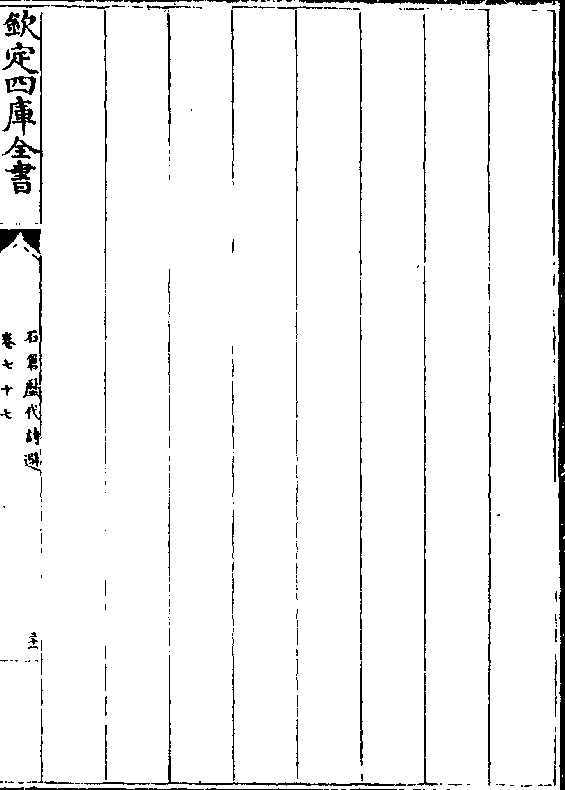 欽定四庫全書
石倉歷代詩選
卷七十七